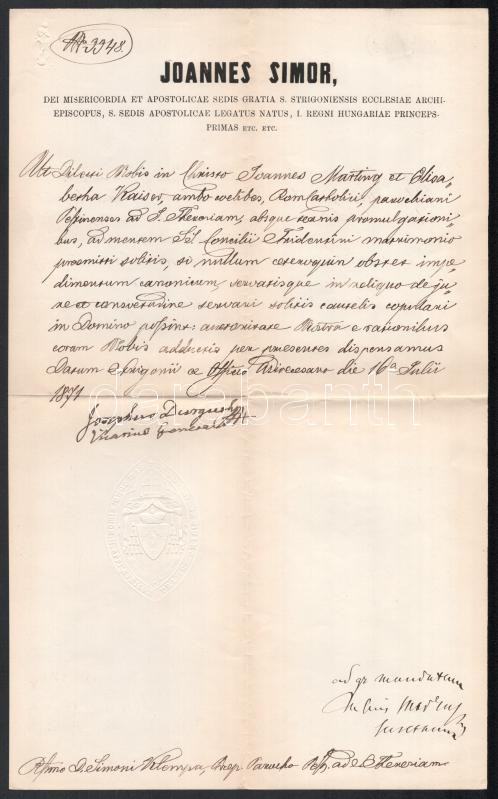 No 3348.
JOANNES SIMOR,
DEI MISERICORDIA ET APOSTOLICAE SEDIS GRATIA S. STRIGONIENSIS ECCLESIAE ARCHI-
EPISCOPUS, S. SEDIS APOSTOLICAE LEGATUS NATUS, I. REGNI HUNGARIAE PRINCEPS-
PRIMAS ETC. ETC.
Ut Dilecti Nobis in Christo Joannes Martiny et Elisa„
betha Kaiser, ambo coelibes, Rom Catholici, parochiani
Pestinenses ad S. Theresiam, absque ternis promulgationi„
bus, ad mentem Sci Concilii Tridentini matrimonio
praemitti solitis, si nullum ceteroquin obstet impe„
dimentum canonicum, servatisque in reliquo de ju„
re et consvetudine servari solitis cautelis copulari
in Domino possint: auctoritate Nostra e rationibus
coram Nobis adductis per praesentes dispensamus
Datum Strigonii ex Officio Dioecesano die 16a Julii
1871
Josephus
Vicarius Generalis
ad gr mandatum
Rssmo D. Simoni Klempa, Praep. Parocho Pest. ad S Theresiam
darabanth